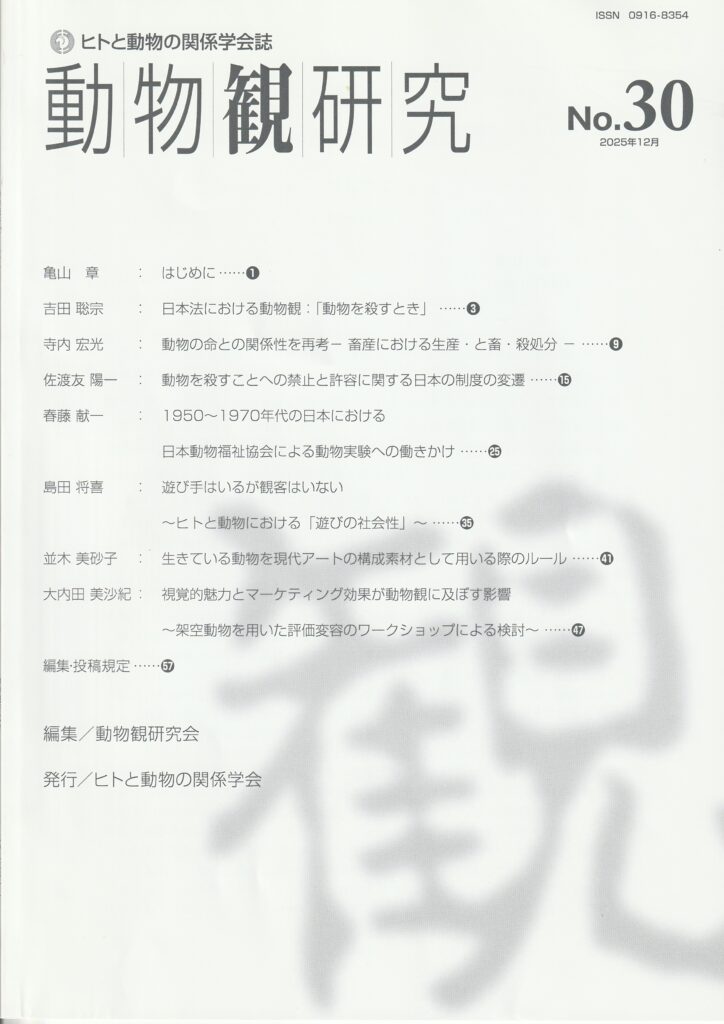 ISSN 0916-8354
ヒトと動物の関係学会誌
動物観研究
No.30
2025年12月
亀山 章 : はじめに……1
吉田 聡宗 : 日本法における動物観:「動物を殺すとき」 ……3
寺内 宏光 : 動物の命との関係性を再考− 畜産における生産・と畜・殺処分 − ……9
佐渡友 陽一 : 動物を殺すことへの禁止と許容に関する日本の制度の変遷 ……15
春藤 献一 : 1950〜1970年代の日本における
日本動物福祉協会による動物実験への働きかけ ……25
島田 将喜 : 遊び手はいるが観客はいない
〜ヒトと動物における「遊びの社会性」〜 ……35
並木 美砂子 : 生きている動物を現代アートの構成素材として用いる際のルール ……41
大内田 美沙紀 : 視覚的魅力とマーケティング効果が動物観に及ぼす影響
〜架空動物を用いた評価変容のワークショップによる検討〜 ……47
編集・投稿規定……67
編集／動物観研究会
発行／ヒトと動物の関係学会
観